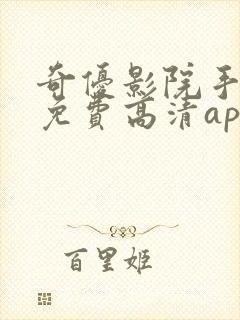 奇優影院手
免費高清ap
百里姬